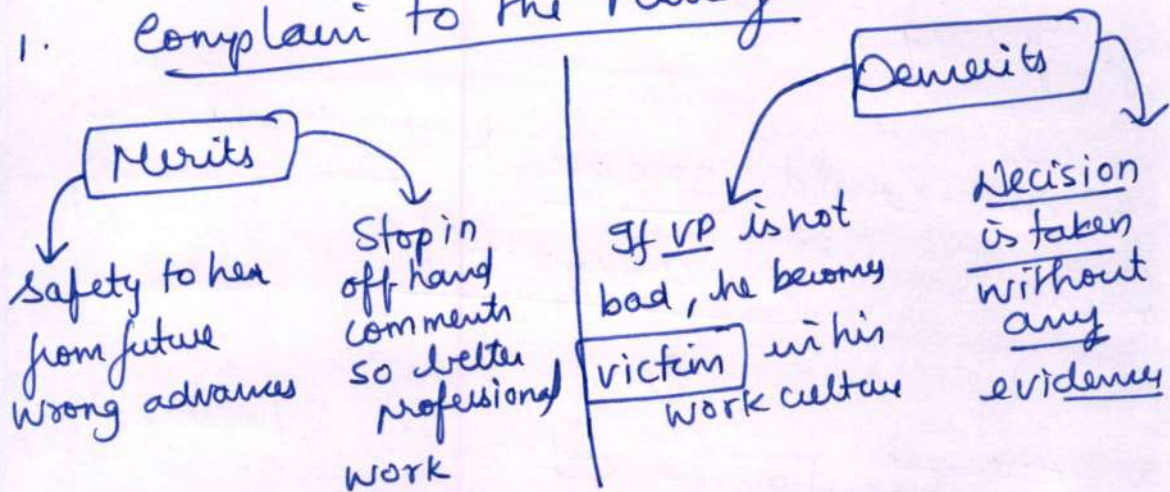 1. Complain to the
Merits
Safety to her
from future
wrong advances
Stop in
off hand
comments
so better
professional
work
Demerits
If VP is not
bad, he becomes
victim in his
work culture
Decision
is taken
without
any
evidence